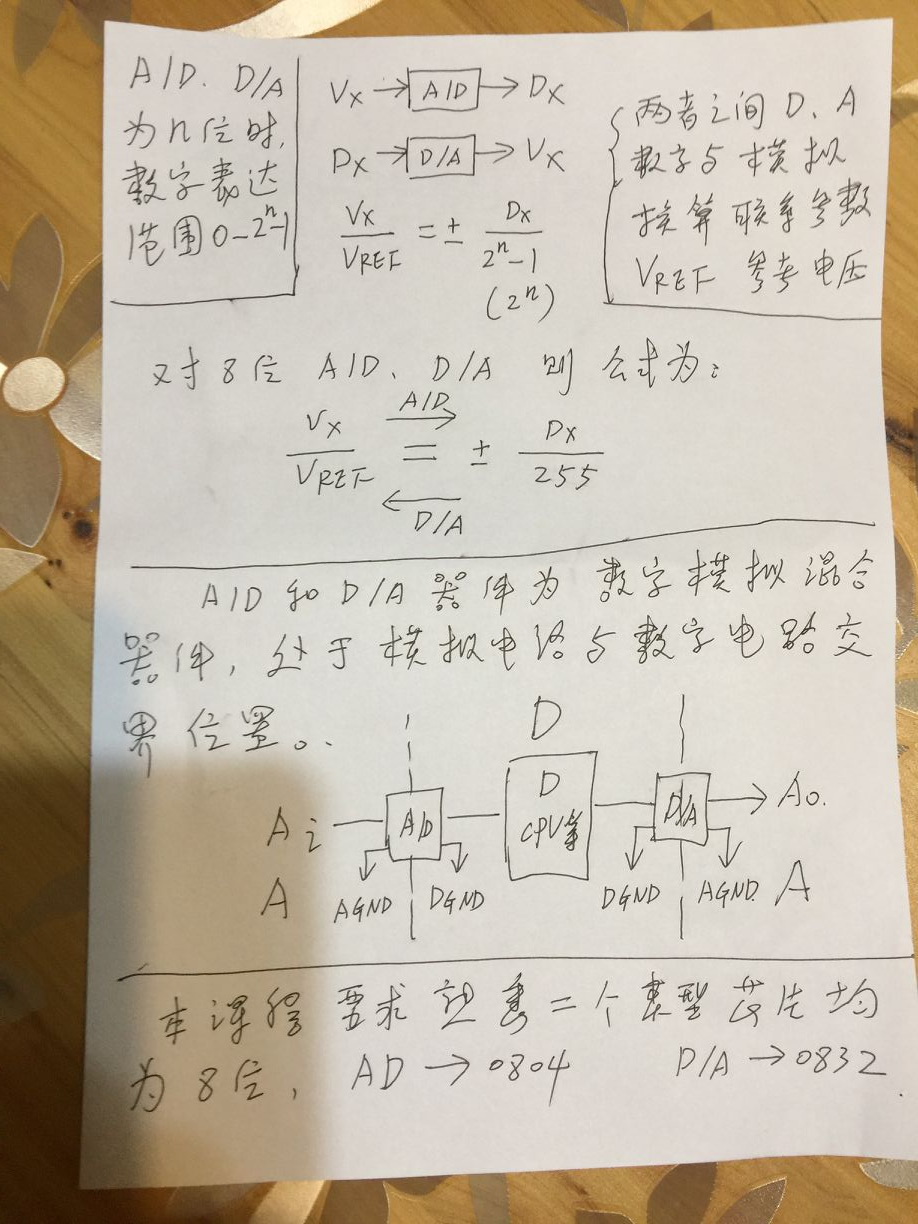 A/D、D/A
为n位时,
数字表达
范围0-2ⁿ-1
Vx → A/D → Dx
Dx → D/A → Vx
Vx/VREF = ± Dx/(2ⁿ-1)
(2ⁿ)
两者之间D、A
数字与模拟
换算联系参数
VREF 参考电压
对8位 A/D、D/A 则公式为:
A/D →
Vx/VREF = ± Dx/255
← D/A
A/D和D/A器件为数字模拟混合
器件,处于模拟电路与数字电路交
界位置。
D
Ai — A/D — D CPU等 — D/A → Ao.
A AGND DGND DGND AGND A
本课程要求熟悉二个类型芯片均
为8位, AD → 0804 D/A → 0832